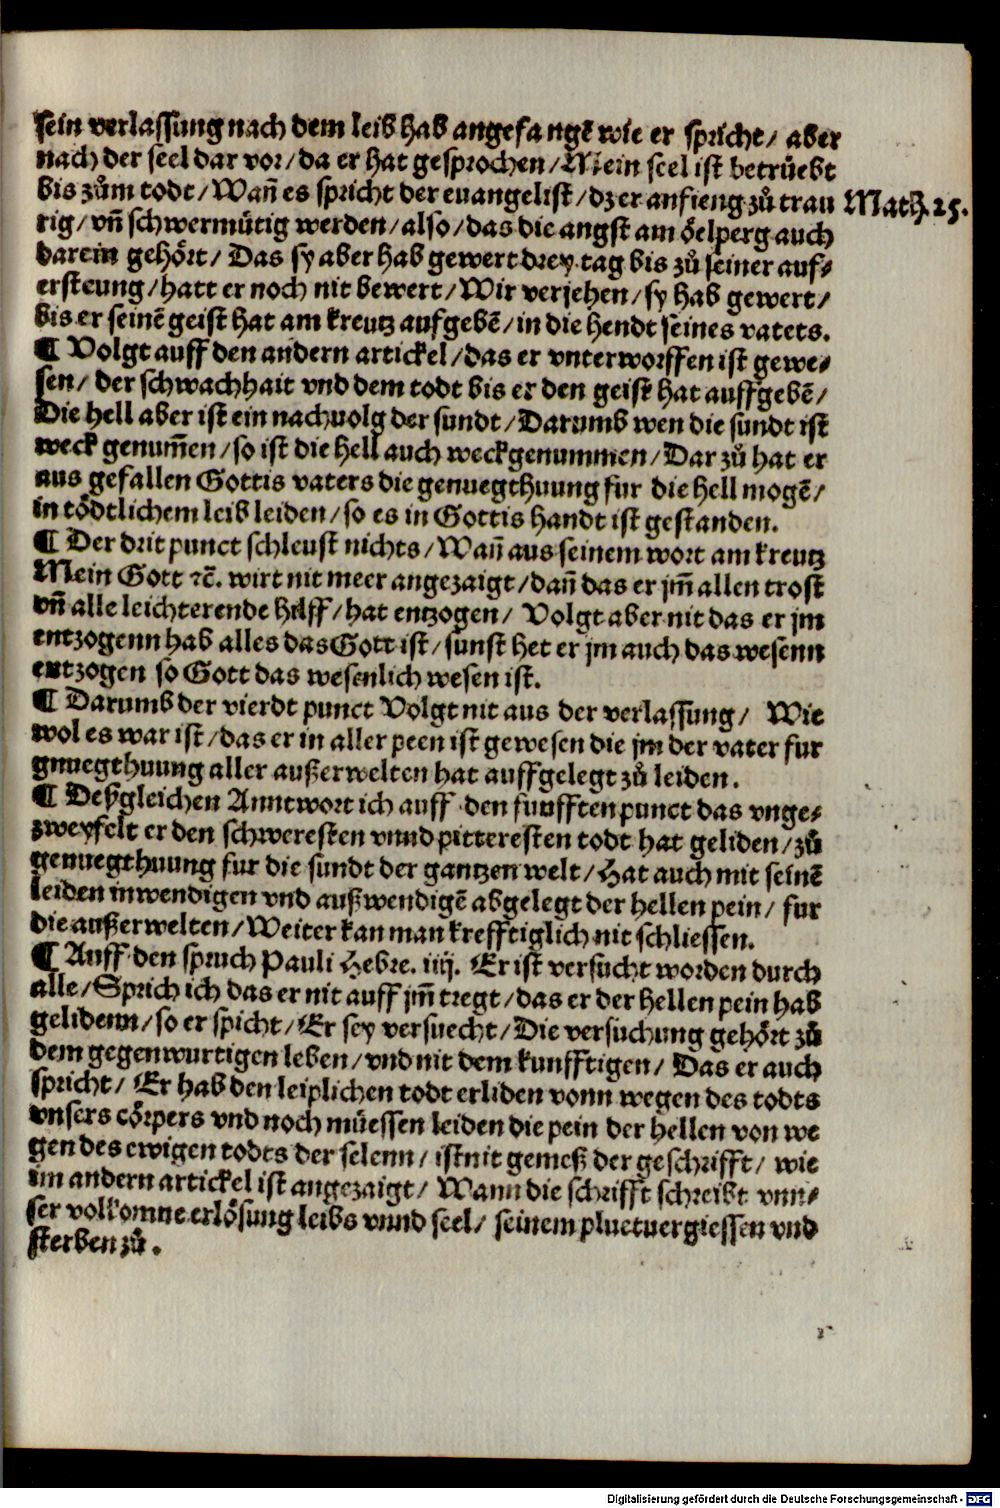 sein verlassung nach dem leib hab angefangẽ wie er spricht/ aber
nach der seel dar vor/ da er hat gesprochen/ Mein seel ist betrüebt
bis zům todt/ Wañ es spricht der euangelist/ dz er anfieng zů trau
Math. 25.
rig/ vñ schwermütig werden/ also/ das die angst am öelperg auch
darein gehört/ Das sy aber hab gewert drey tag bis zů seiner auf⸗
ersteung/ hatt er noch nit bewert/ Wir verjehen/ sy hab gewert/
bis er seinẽ geist hat am kreutz aufgebẽ/ in die hendt seines vaters.
¶ Volgt auff den andern artickel/ das er vnterworffen ist gewe⸗
sen/ der schwachhait vnd dem todt bis er den geist hat auffgebẽ/
Die hell aber ist ein nachuolg der sundt/ Darumb wen die sundt ist
weck genum̃en/ so ist die hell auch weckgenummen/ Dar zů hat er
aus gefallen Gottis vaters die genuegthuung fur die hell mogẽ/
in tödtlichem leib leiden/ so es in Gottis handt ist gestanden.
¶ Der drit punct schleust nichts/ Wañ aus seinem wort am kreutz
Mein Gott ⁊c̃. wirt nit meer angezaigt/ dañ das er jm̃ allen trost
vñ alle leichterende hilff/ hat entzogen/ Volgt aber nit das er jm
entzogenn hab alles das Gott ist/ sunst het er jm auch das wesenn
entzogen so Gott das wesenlich wesen ist.
¶ Darumb der vierdt punct Volgt nit aus der verlassung/ Wie
wol es war ist/ das er in aller peen ist gewesen die jm der vater fur
gnuegthuung aller außerwelten hat auffgelegt zů leiden.
¶ Deßgleichen Anntwort ich auff den funfften punct das vnge⸗
zweyfelt er den schweresten vnnd pitteresten todt hat geliden/ zů
genuegthuung fur die sundt der gantzen welt/ Hat auch mit seinẽ
leiden inwendigen vnd außwendigẽ abgelegt der hellen pein/ fur
die außerwelten/ Weiter kan man krefftiglich nit schliessen.
¶ Auff den spruch Pauli Hebre. iiij. Er ist versucht worden durch
alle/ Sprich ich das er nit auff jm̃ tregt/ das er der hellen pein hab
gelidenn/ so er spicht/ Er sey versuecht/ Die versuchung gehört zů
dem gegenwurtigen leben/ vnd nit dem kunfftigen/ Das er auch
spricht/ Er hab den leiplichen todt erliden vonn wegen des todts
vnsers cörpers vnd noch müessen leiden die pein der hellen von we
gen des ewigen todts der selenn/ ist nit gemeß der geschrifft/ wie
im andern artickel ist angezaigt/ Wann die schrifft schreibt vnn⸗
ser volkomne erlösung leibs vnnd seel/ seinem pluetuergiessen vnd
sterben zů.
Digitalisierung gefördert durch die Deutsche Forschungsgemeinschaft - DFG